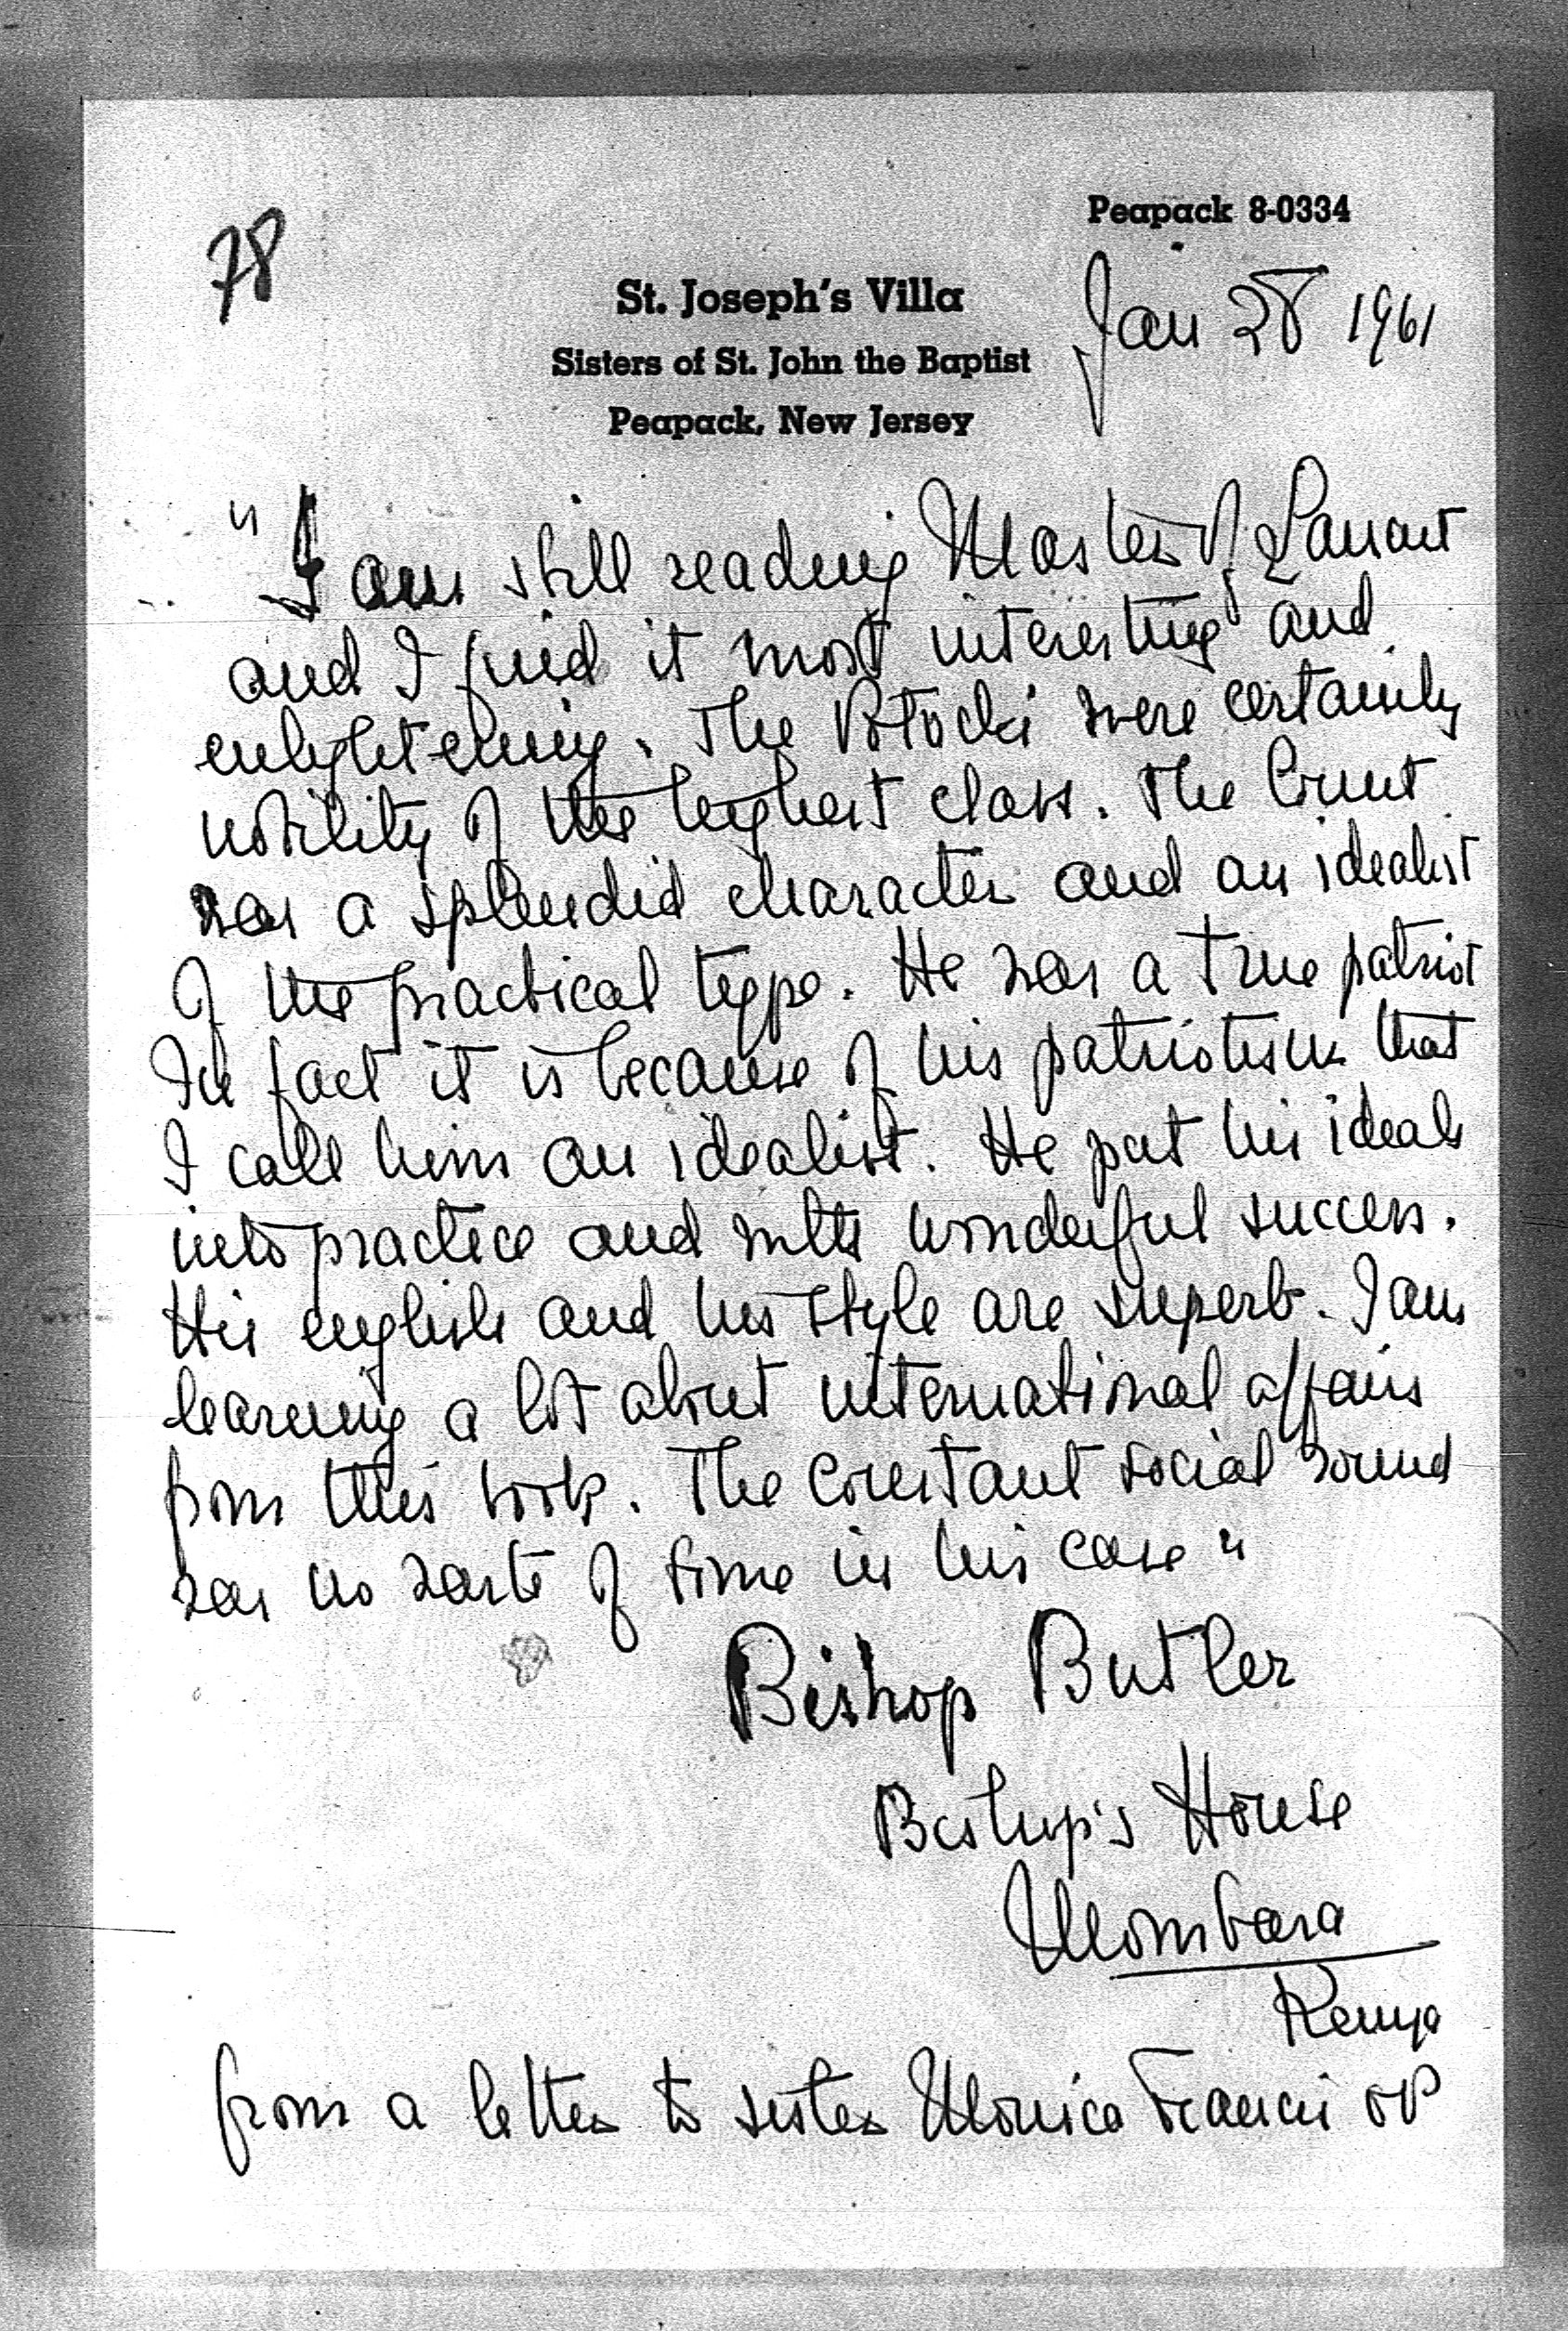 Peapack 8-0334
78
St. Joseph's Villa
Jan 28 1961
Sisters of St. John the Baptist
Peapack, New Jersey
"I am still reading Master of Lancut
and I find it most interesting and
enlightening. The Potocki were certainly
nobility of the highest class. The Count
was a splendid character and an idealist
of the practical type. He was a true patriot
In fact it is because of his patriotism that
I call him an idealist. He put his ideals
into practice and with wonderful success.
His english and his style are superb. I am
learning a lot about international affairs
from this book. The constant social round
was no waste of time in his case"
Bishop Butler
Bishop's House
Mombasa
Kenya
from a letter to sister Monica Francis OP